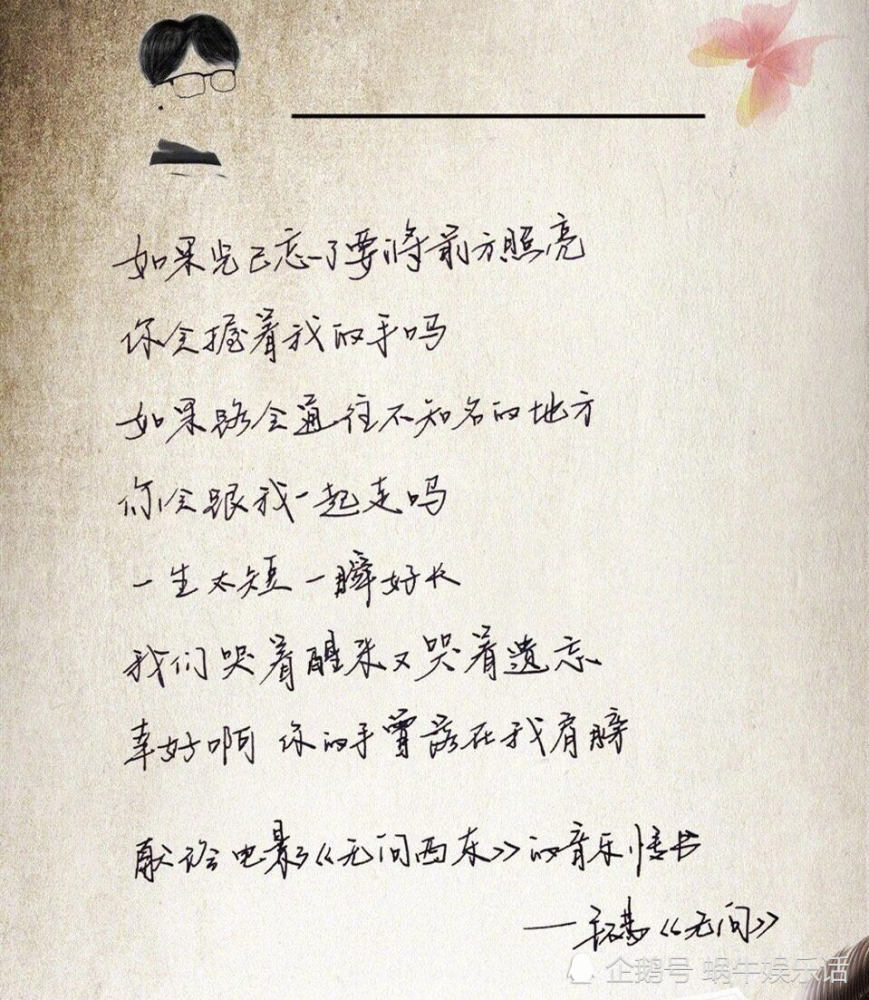 如果光已忘了要将前方照亮
你会握着我的手吗
如果路会通往不知名的地方
你会跟我一起走吗
一生太短 一瞬好长
我们哭着醒来又哭着遗忘
幸好啊 你的手曾落在我肩膀
献给电影《无问西东》的音乐情书
——毛不易《无问》
企鹅号 蜗牛娱乐话